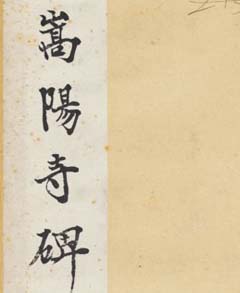 嵩陽寺碑